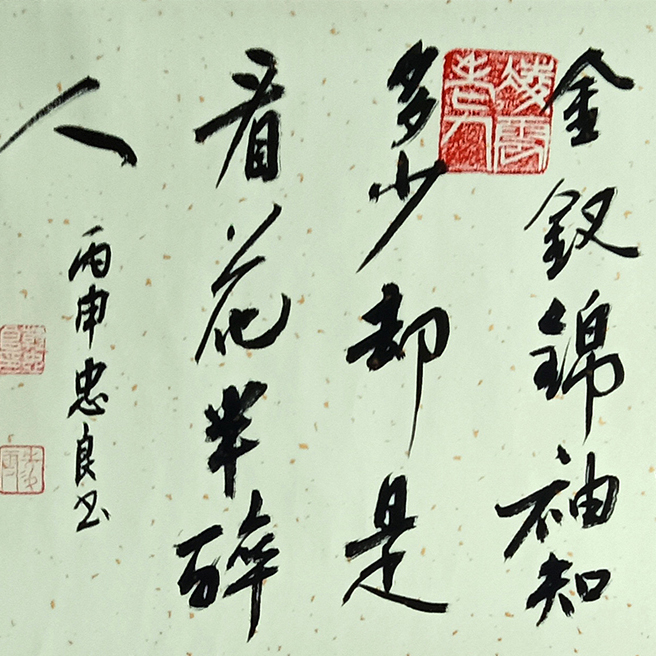 金釵錦袖知
多少却是
看花半醉
人
丙申忠良书